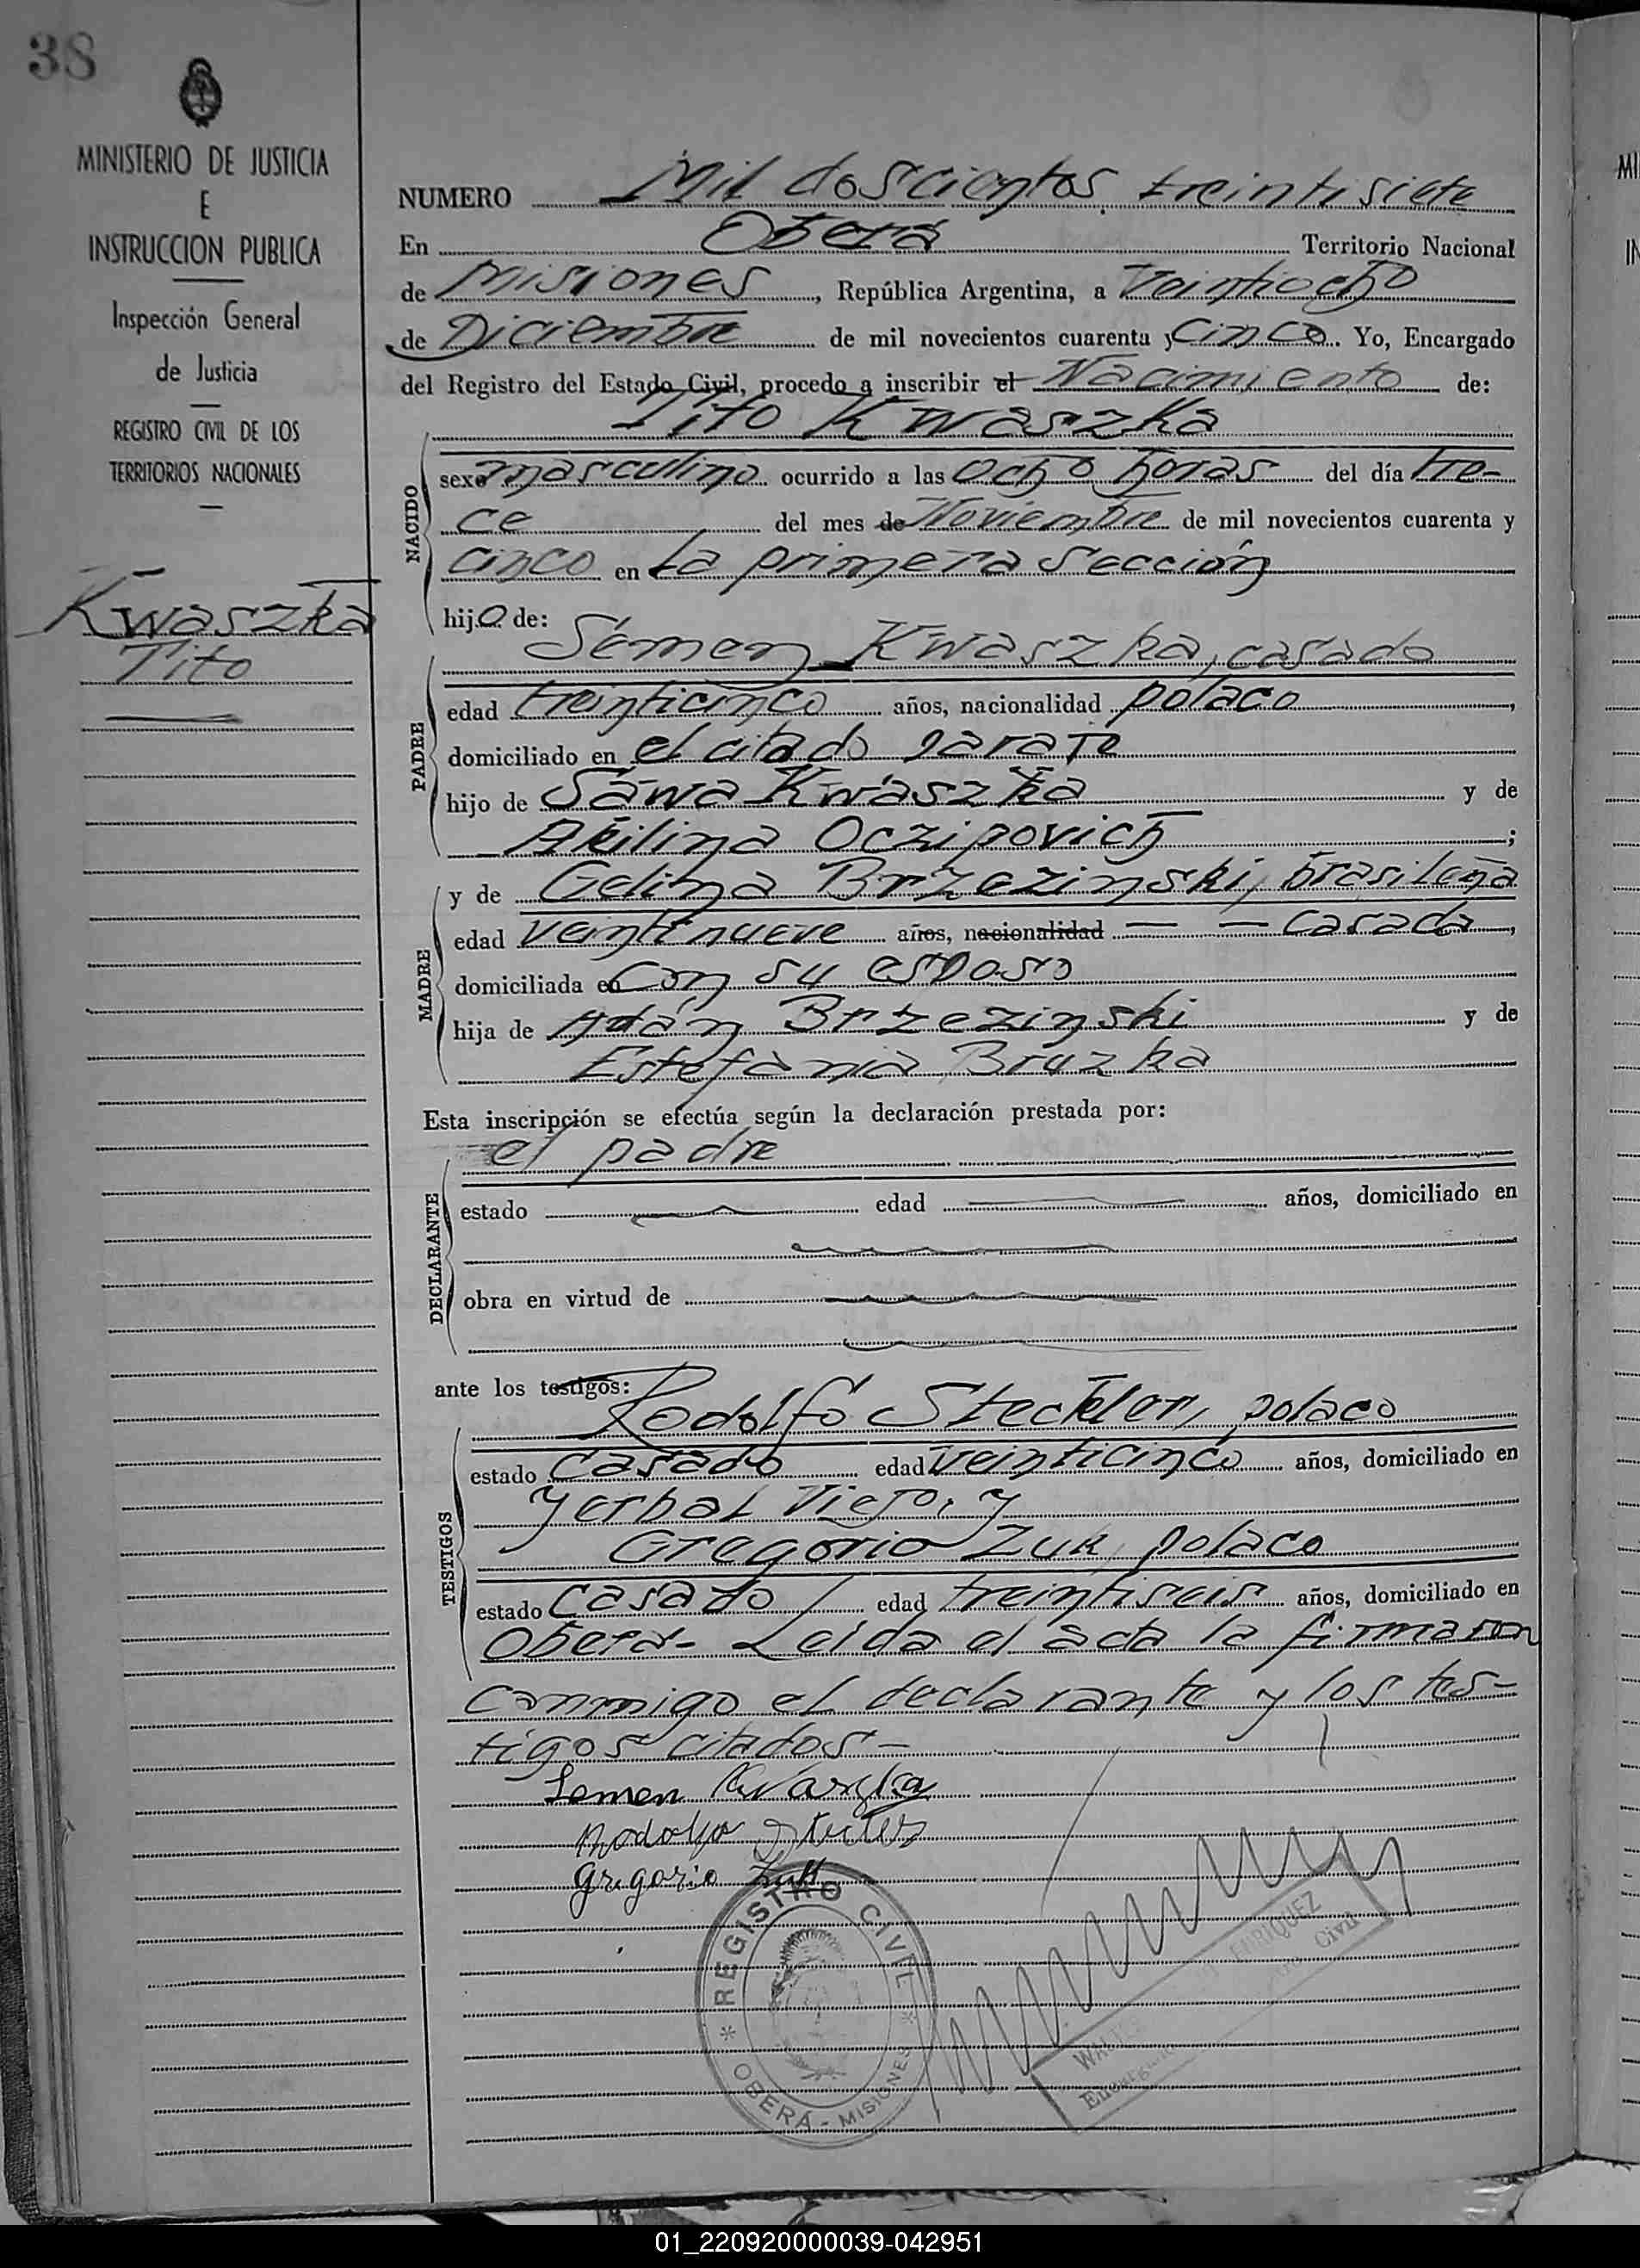 38
MINISTERIO DE JUSTICIA
E
INSTRUCCION PUBLICA
Inspección General
de Justicia
REGISTRO CIVIL DE LOS
TERRITORIOS NACIONALES
Kwaszka
Tito
NUMERO Mil doscientos treinti siete
En Oberá Territorio Nacional
de Misiones, República Argentina, a Veintiocho
de Diciembre de mil novecientos cuarenta y Cinco. Yo, Encargado
del Registro del Estado Civil, procedo a inscribir el Nacimiento de:
Tito Kwaszka
NACIDO
sexo masculino ocurrido a las ocho horas del día tre-
ce del mes de Noviembre de mil novecientos cuarenta y
cinco en La primera Sección
hijo de:
Sémen Kwaszka, casado
PADRE
edad treinticinco años, nacionalidad polaco,
domiciliado en el citado paraje
hijo de Sáwa Kwászka y de
Akilina Oczipovich;
MADRE
y de Gelina Brzezinski, brasileña
edad veintinueve años, nacionalidad — — casada,
domiciliada en con su esposo
hija de Adán Brzezinski y de
Estefania Bruzka
Esta inscripción se efectúa según la declaración prestada por:
el padre
DECLARANTE
estado edad años, domiciliado en
obra en virtud de
ante los testigos:
Rodolfo Steckler, polaco
TESTIGOS
estado casado edad veinticinco años, domiciliado en
Yerbal Viejo, y
Gregorio Zuk, polaco
estado casado edad treintiseis años, domiciliado en
Oberá- Leida el acta la firmaron
conmigo el declarante y los tes-
tigos citados-
Semen Kwaszka
Rodolfo
Gregorio Zuk
REGISTRO CIVIL
OBERÁ - MISIONES
ENRIQUEZ
Civil
01_220920000039-042951